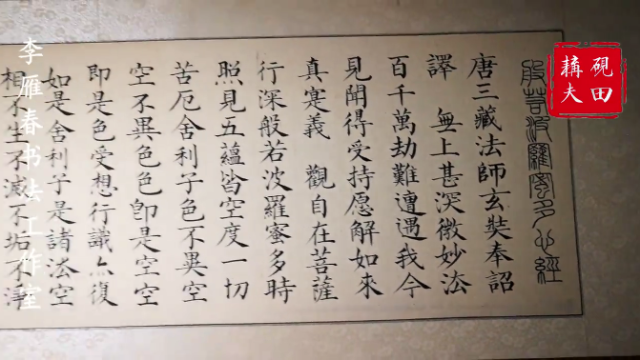 硯田
耩夫
般若波羅蜜多心經
唐三藏法師玄奘奉詔
譯 無上甚深微妙法
百千萬劫難遭遇我今
見聞得受持愿解如來
真寔義 觀自在菩薩
行深般若波羅蜜多時
照見五蘊皆空度一切
苦厄舍利子色不異空
空不異色色即是空空
即是色受想行識亦復
如是舍利子是諸法空
相不生不滅不垢不淨
李雁春书法工作室